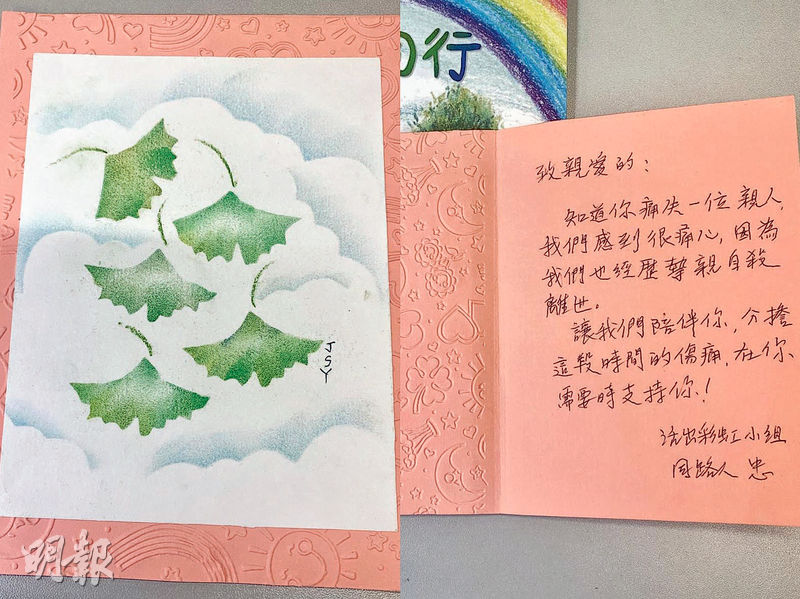 JSY
明報
行
致親愛的：
知道你痛失一位親人，
我們感到很痛心，因為
我們也經歷摯親自殺
離世。
讓我們陪伴你，分擔
這段時間的傷痛，在你
需要時支持你！
活出彩虹小組
同路人 忠